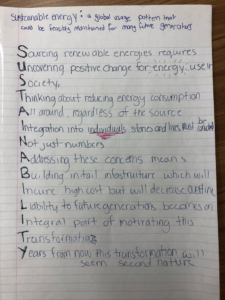 Sustainable energy: a global usage pattern that
could be feasibly maintained for many future generations
Sourcing renewable energies requires
Uncovering positive change for energy use in
Society.
Thinking about reducing energy consumption
All around, regardless of the source
Integration into individuals stories and lives must be
Not just numbers
Addressing these concerns means
Building initail infastructure which will
Incure high cost but will decrease
Liability to future generation, becomes an
Integral part of motivating this
Transformation
Years from now this transformation will
seem second nature